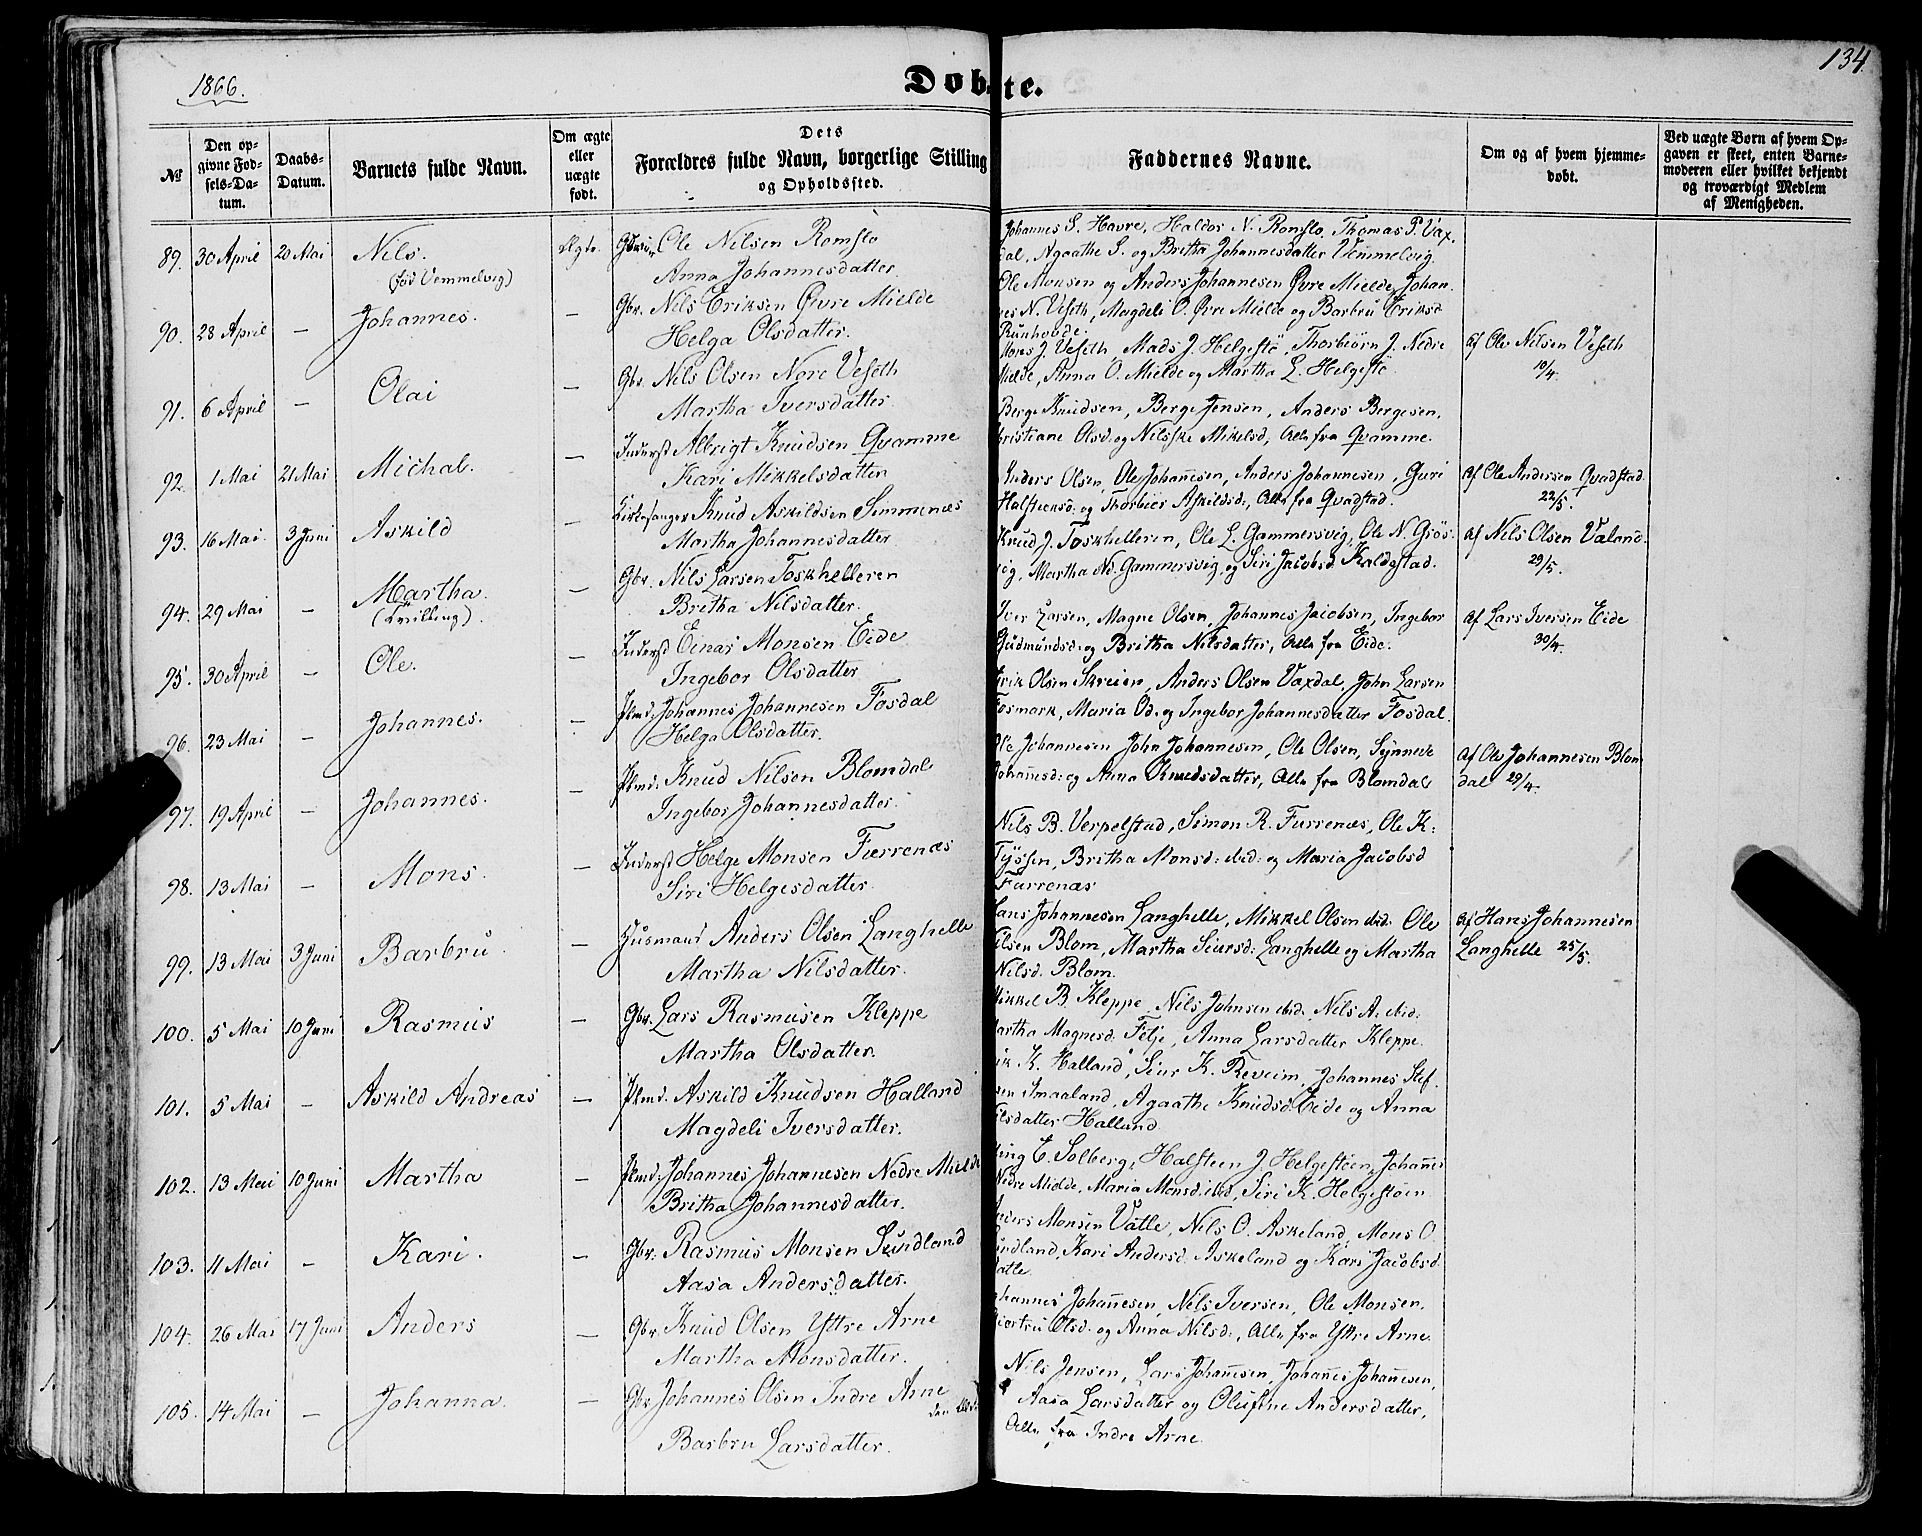 1866.
Døbte.
134.
No.
Den opgivne Fødsels-Datum.
Daabs-Datum.
Barnets fulde Navn.
Om ægte eller uægte født.
Dets Forældres fulde Navn, borgerlige Stilling og Opholdssted.
Faddernes Navne.
Om og af hvem hjemmedøbt.
Ved uægte Børn af hvem Opgaven er skeet, enten Barnemoderen eller hvilket bekjendt og troværdigt Medlem af Menigheden.
89. 30 April 20 Mai Nils. Ægte. Ole Nilsen Romslo
(fød Vemmelvig) Anna Johannesdatter.
Johannes S. Havre, Haldor N. Romslo, Thomas P. Vax.
dal, Agaathe S. og Britha Johannesdatter Vemmelvig
90. 28 April — Johannes. — Gbr. Nils Eriksen Øvre Mielde
Helga Olsdatter.
Ole Monsen og Anders Johannesen Øvre Mielde, Johan.
nes N. Veseth, Magdeli O. Øvre Mielde og Barbru Eriksd
Runhovde.
91. 6 April — Olai — Gbr. Nils Olsen Nøre Veseth
Martha Iversdatter
Mons J. Veseth, Mads J. Helgestø, Thorbiørn J. Nedre
Mielde, Anna O. Mielde og Martha L. Helgestø
af Ole Nilsen Veseth
10/4.
92. 1 Mai 21 Mai Michal. — Inderst Albrigt Knudsen Qvamme
Kari Mikkelsdatter
Berge Knudsen, Berge Jensen, Anders Bergesen,
Christiane Olsd. og Nilske Mikelsd, Alle fra Qvamme.
93. 16 Mai. 3 Juni Askild — Kirkesanger Knud Askildsen Simmenæs
Martha Johannesdatter
Anders Olsen, Ole Johanesen, Anders Johannesen, Guri
Halsteensd: og Thorbiør Askildsd:, Alle fra Qvadstad.
af Ole Andersen Qvadstad
22/5.
94. 29 Mai — Martha. (Tvilling). — Gbr. Nils Larsen Toskhelleren
Britha Nilsdatter.
Knud J. Toskhelleren, Ole L. Gammersvig, Ole N. Grøs.
vig, Martha Nd. Gammersvig, og Siri Jacobsd Kaldestad.
af Nils Olsen Valand.
29/5.
95. 30 April — Ole. — Inderst Einar Monsen Eide
Ingebor Olsdatter
Iver Larsen, Magne Olsen, Johannes Jacobsen, Ingebor
Gudmundsd: og Britha Nilsdatter, Alle fra Eide.
af Lars Iversen Eide
30/4.
96. 23 Mai — Johannes. — Plmd. Johannes Johannesen Fosdal
Helga Olsdatter.
Erik Olsen Skreien, Anders Olsen Vaxdal, John Larsen
Fosmark, Maria Od. og Ingebor Johannesdatter Fosdal.
97. 19 April — Johannes. — Plmd. Knud Nilsen Blomdal
Ingebor Johannesdatter.
Ole Johannesen, John Johannesen, Ole Olsen, Synneve
Johanesd: og Anna Knudsdatter, Alle fra Blomdal
af Ole Johannesen Blom
dal 29/4.
98. 13 Mai — Mons. — Inderst Helge Monsen Furrenæs
Siri Helgesdatter.
Nils B. Verpelstad, Simon R. Furrenæs, Ole K:
Tyssen, Britha Monsd: ibid: og Maria Jacobsd
Furrenæs
99. 13 Mai 3 Juni Barbru. — Husmand Anders Olsen Langhelle
Martha Nilsdatter.
Hans Johannesen Langhelle, Mikkel Olsen ibid: Ole
Nilsen Blom, Martha Siursd: Langhelle og Martha
Nilsd. Blom.
af Hans Johannesen
Langhelle 25/5.
100. 5 Mai 10 Juni Rasmus — Gbr. Lars Rasmusen Kleppe
Martha Olsdatter.
Mikkel B Kleppe, Nils Johnsen ibid: Nils A. ibid:
Martha Magnesd. Felje, Anna Larsdatter Kleppe.
101. 5 Mai — Askild Andreas — Plmd. Askild Knudsen Halland
Magdeli Iversdatter.
K. Halland, Siur K. Reveim, Johannes Stef.
sen Smaaland, Agaathe Knudsd: Eide og Anna
Nilsdatter Halland.
102. 13 Mai 10 Juni Martha — Plmd. Johannes Johannesen Nedre Mielde
Britha Johannesdatter.
E. Solberg, Halsteen J. Helgestøen, Johanes
Nedre Mielde, Maria Monsd. ibid, Siri K. Helgestøen
103. 11 Mai — Kari. — Gbr. Rasmus Monsen Sundland
Aasa Andersdatter.
Anders Monsen Vatle, Nils O. Askeland, Mons O.
Sundland, Kari Andersd. Askeland og Kari Jacobsd.
Vatle.
104. 26 Mai 17 Juni Anders — Gbr. Knud Olsen Yttre Arne
Martha Monsdatter.
Johannes Johanesen, Nils Iversen, Ole Monsen,
Giertru Olsd. og Anna Nilsd:, Alle fra Yttre Arne.
105. 14 Mai — Johanna. — Gbr. Johannes Olsen Indre Arne
Barbru Larsdatter.
Nils Jensen, Lars Johanesen, Johanes Johanesen,
Aasa Larsdatter og Olufine Andersdatter,
Alle fra Indre Arne.